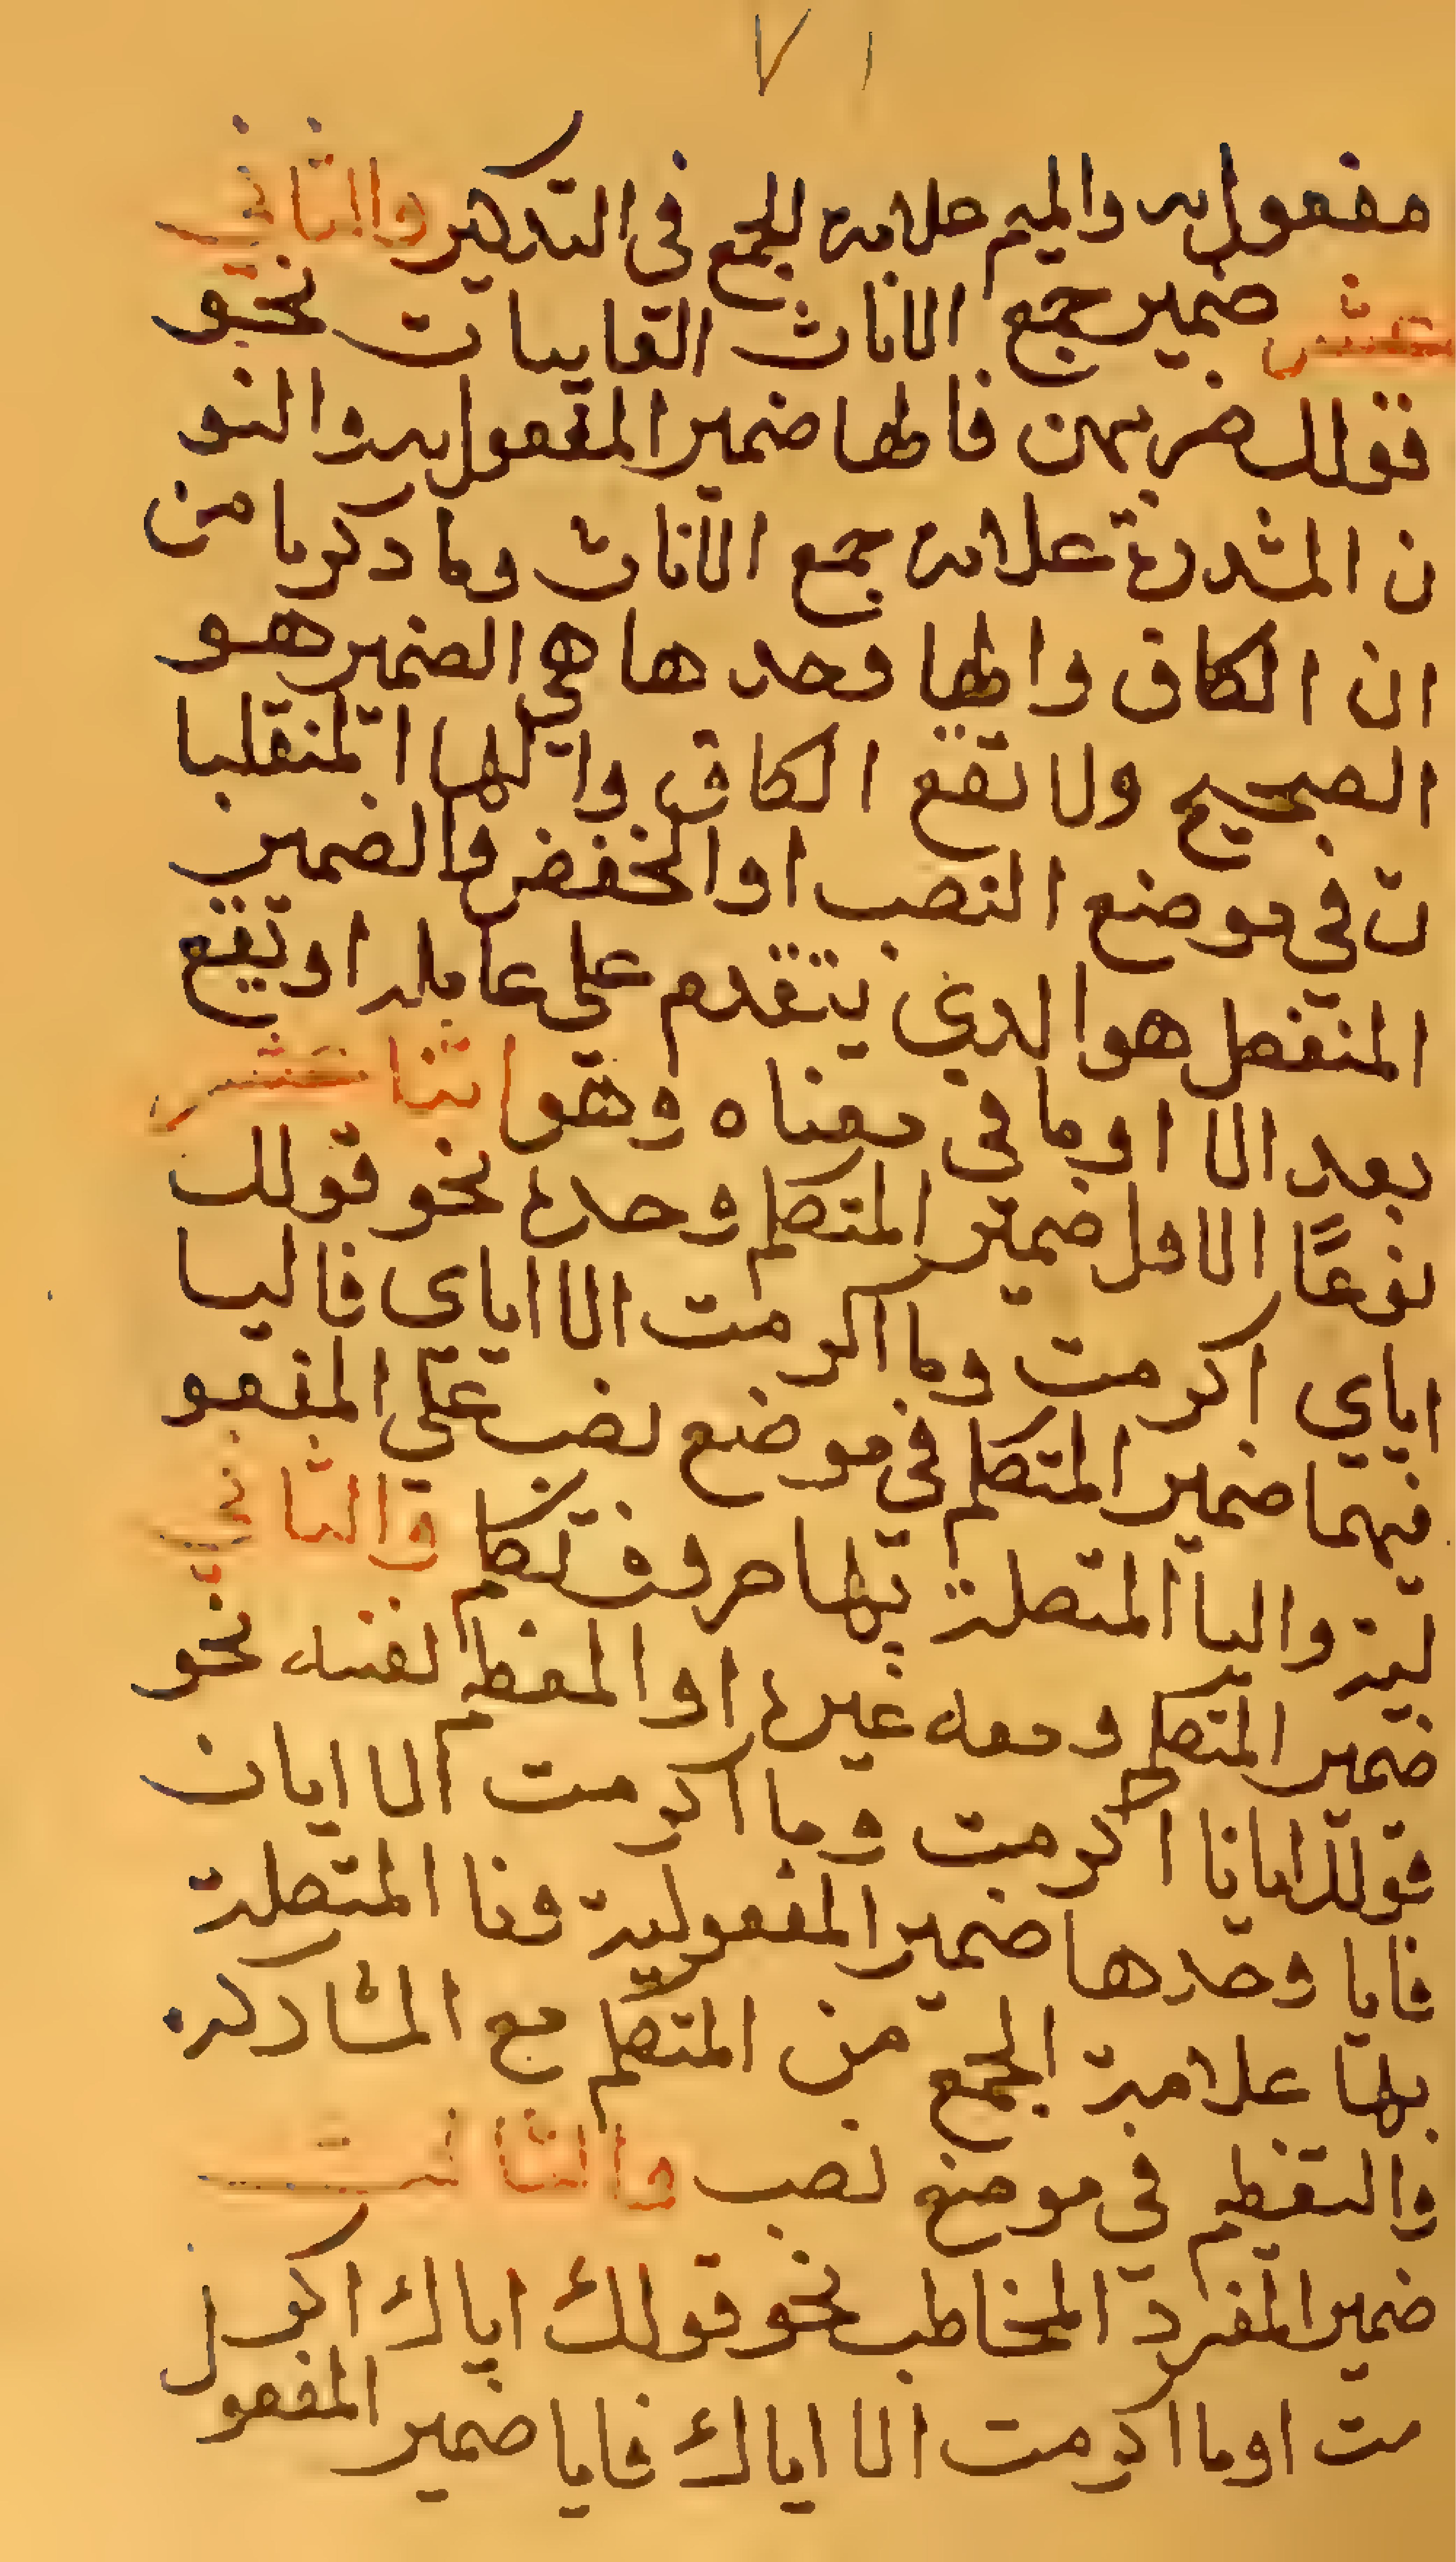 ٧١
مفعول به والميم علامة الجمع في التدكير والثاني
عشر ضمير جمع الاناث الغايبات نحو
قولك ضربهن فالها ضمير المفعول به والنو
ن المشددة علامة جمع الاناث وما دكرنا من
ان الكاف والها وحدها هي الضمير هو
الصحيح ولا تقع الكاف والها المنقلبا
ت في موضع النصب او الخفض والضمير
المنفصل هو الدي يتقدم على عامله او يقع
بعد الا او ما في معناه وهو اثنا عشر
نوعًا الاول ضمير المتكلم وحده نحو قولك
اياي اكرمت وما اكرمت الا اياي فاليا
فيهما ضمير المتكلم في موضع نصب على المفعو
لية واليا المتصلة بها حروف تكلم والثاني
ضمير المتكلم ومعه غيره او المعظم نفسه نحو
قولك ايانا اكرمت وما اكرمت الا ايان
فايا وحدها ضمير المفعولية ونا المتصلة
بها علامة الجمع من المتكلم مع المشاركة
والتعظيم في موضع نصب والثالث
ضمير المفرد المخاطب نحو قولك اياك اكر
مت او ما اكرمت الا اياك فايا ضمير المفعول